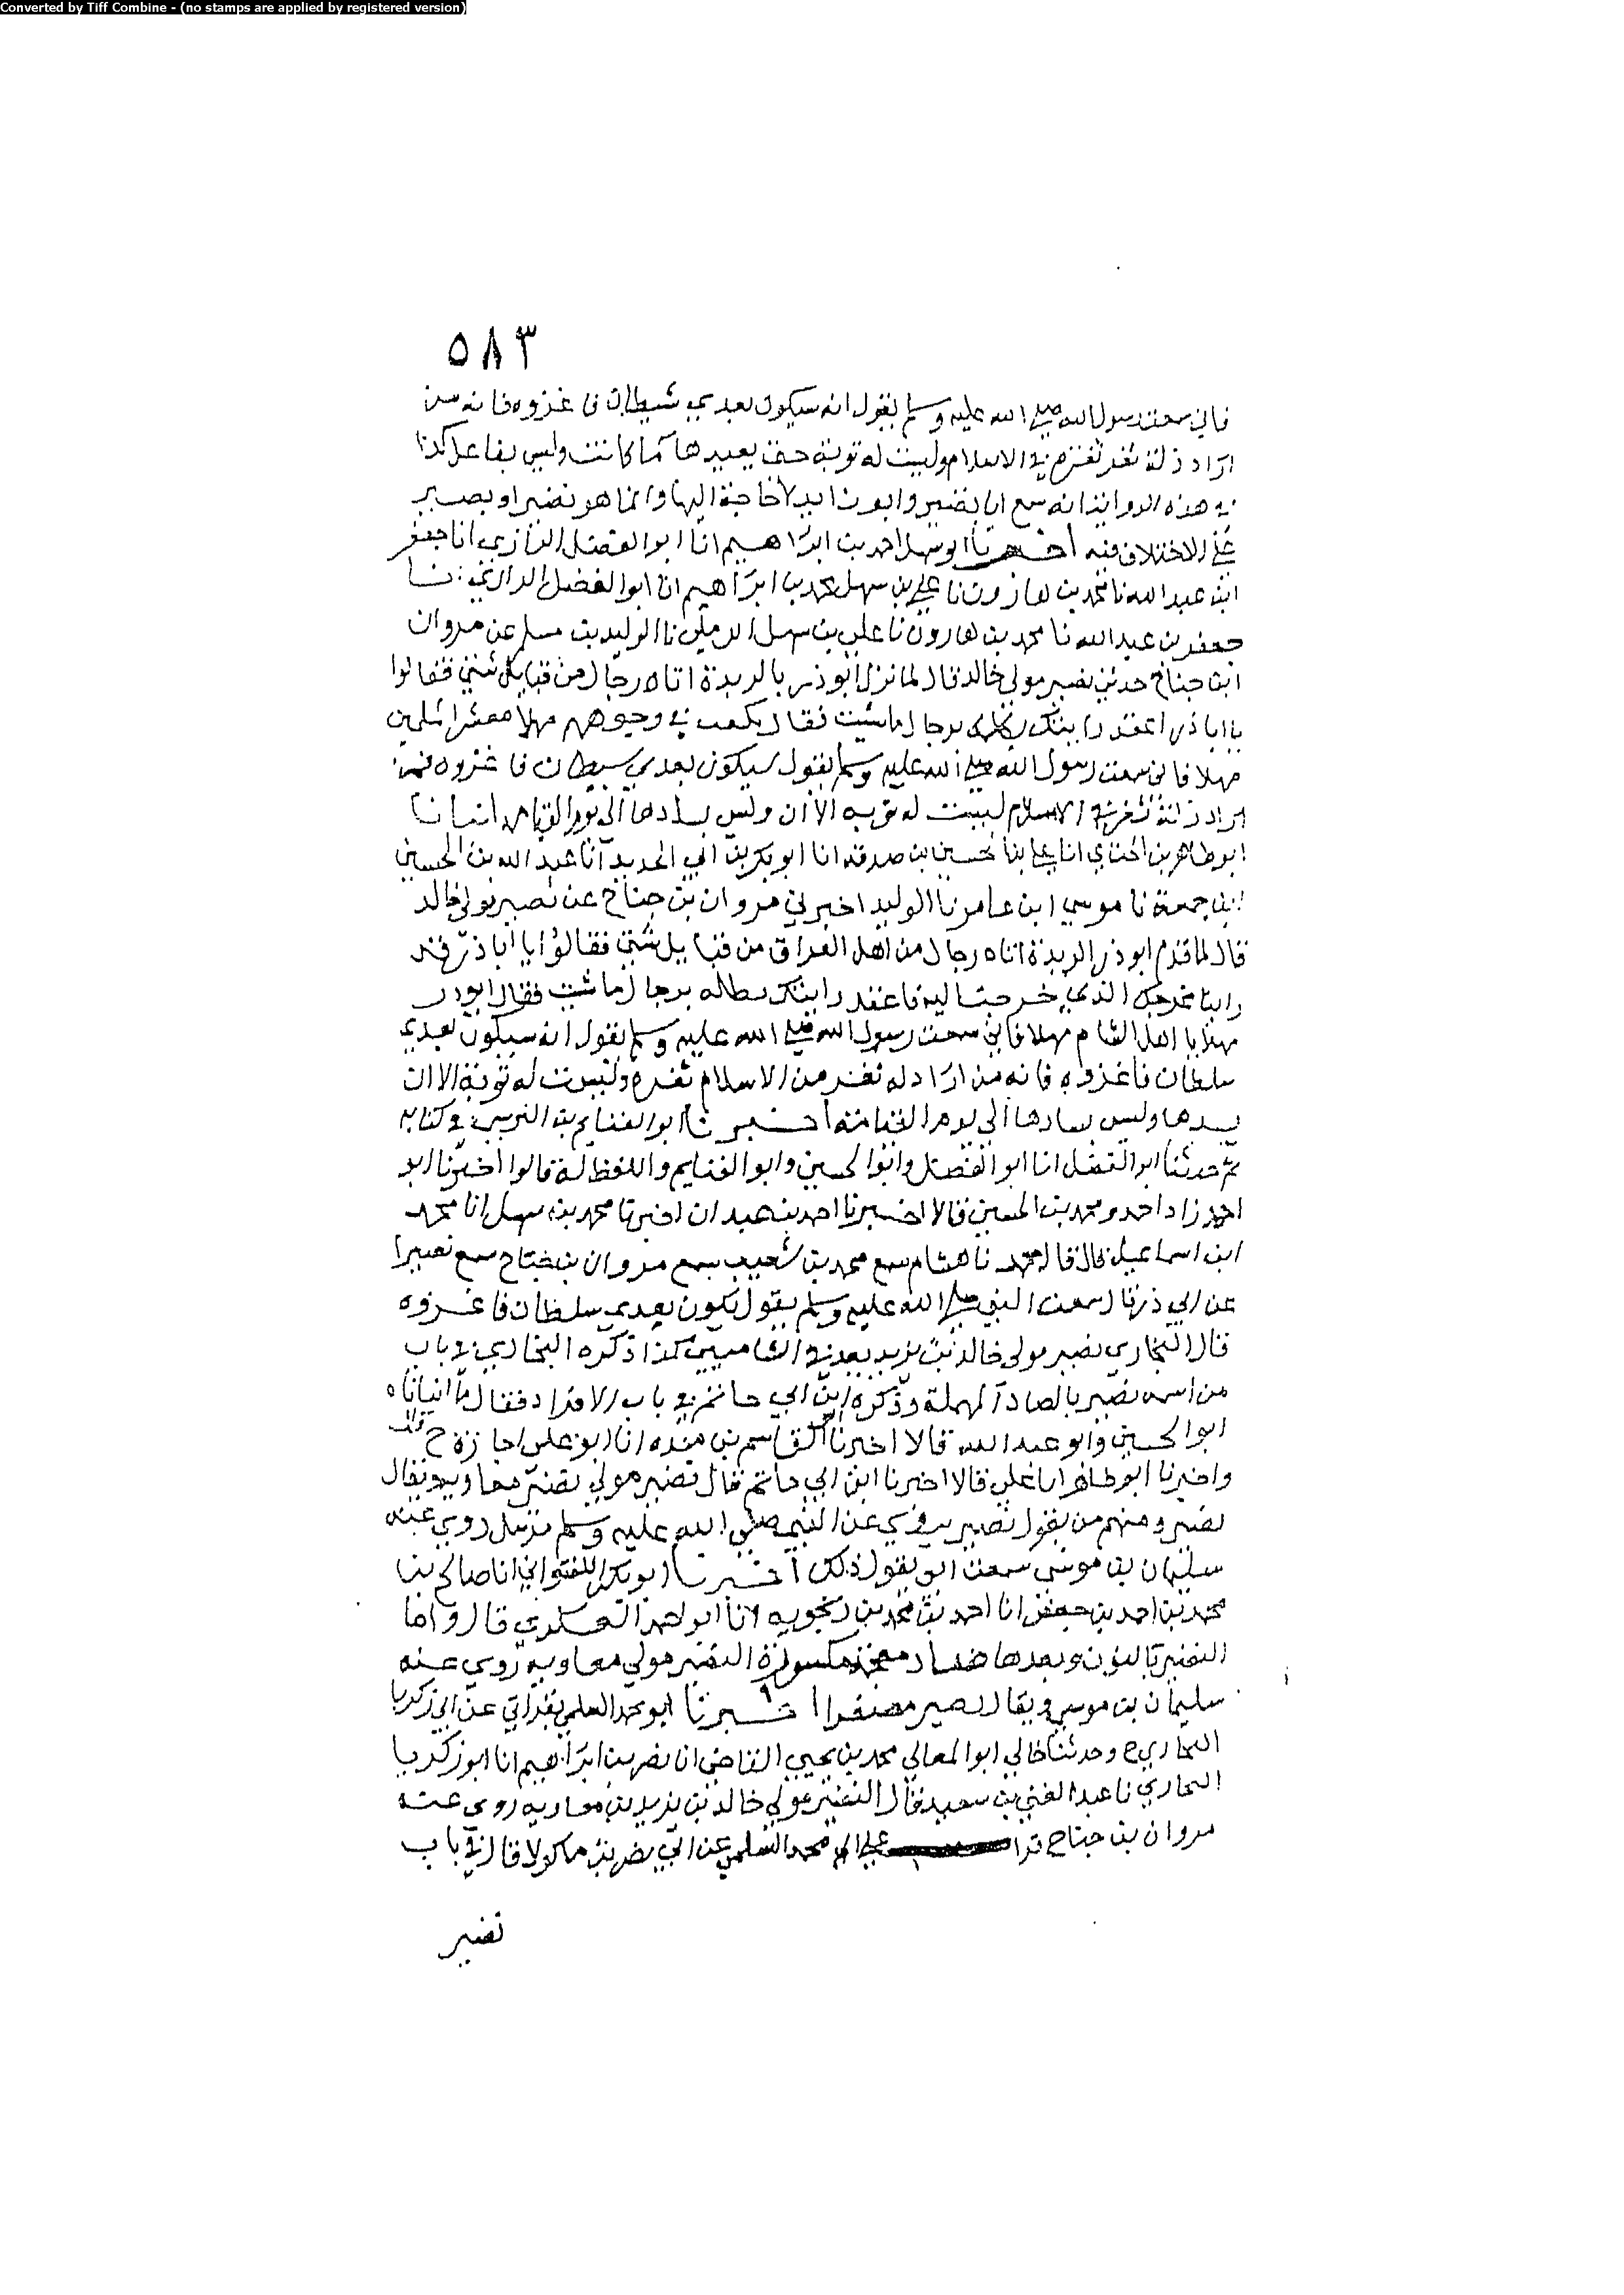 Converted by Tiff Combine - (no stamps are applied by registered version)
٥٨٣
فاني سمعت رسول الله صلى الله عليه وسلم يقول انه سيكون بعدي شيطان فا غزوه فانه من
اراد ذله ثغر ثغرة في الاسلام وليست له توبة حتى يعيدها كما كانت وليس بفاعل كذا
في هذه الرواية انه سمع ابا نضير وابو زايد لا حاجة اليها وانما هو نضير او بصير
على الاختلاف فيه اخبرنا ابو سهل احمد بن ابراهيم انا ابو الفضل الرازي انا جعفر
ابن عبد الله نا محمد بن هارون نا علي بن سهل محمد بن ابراهيم انا ابو الفضل الرازي نا
جعفر بن عبد الله نا محمد بن هارون نا علي بن سهل الرملي نا الوليد بن مسلم عن مروان
ابن جناح حدثني نضير مولى خالد قال لما نزل ابو ذر بالربذة اتاه رجال من قبايل شتى فقالوا
يا ابا ذر اعقد رايتك برجال ما شيت فقال بكعب في وجوههم مهلا معشر المسلمين
مهلا فاني سمعت رسول الله صلى الله عليه وسلم يقول سيكون بعدي سيطان فا غزوه فمن
اراد ذله ثغر ثغرة الاسلام ليست له توبه الا ان وليس بسادها الى يوم القيامه انبانا
ابو طاهر بن الحنائي انا علي بن الحسين بن صدقه انا ابو بكر بن ابي الحديد انا عبد الله بن الحسين
ابن جمعة نا موسى ابن عامر نا الوليد اخبرني مروان بن جناح عن نصير مولى خالد
قال لما قدم ابو ذر الربذة اتاه رجال من اهل العراق من قبايل شتى فقالوا يا ابا ذر قد
راينا مخرجك الذي خرجت اليه فاعقد رايتك برجال ما شيت فقال ابو ذر
مهلا يا اهل الشام مهلا فاني سمعت رسول الله صلى الله عليه وسلم يقول انه سيكون بعدي
سلطان فاغزوه فانه من اراد له ثغر من الاسلام ثغره وليست له توبة الا ان
يسدها وليس بسادها الى يوم القيامة اخبرنا ابو الغنايم بن النرسي في كتابه
ثم حدثنا ابو الفضل انا ابو الفضل وابو الحسين وابو الغنايم واللفظ له قالوا اخبرنا ابو
احمد زاد احمد ومحمد بن الحسين قالا اخبرنا احمد بن عبدان اخبرنا محمد بن سهل انا محمد
ابن اسماعيل قال قال محمد نا هشام سمع محمد بن شعيب سمع مروان بن جناح سمع نصيرا
عن ابي ذر قال سمعت النبي صلى الله عليه وسلم يقول يكون بعدي سلطان فا غزوه
قال البخاري نصير مولى خالد بن يزيد يعد في الشاميين كذا ذكره البخاري في باب
من اسمه نصير بالصاد المهملة وذكره ابن ابي حاتم في باب الافراد فقال ما انباناه
ابو الحسين وابو عبد الله قالا اخبرنا القاسم بن منده انا ابو علي اجازة ح قال
واخبرنا ابو طاهر انا علي قالا اخبرنا ابن ابي حاتم قال نضير مولى معاوية ويقال
نصير ومنهم من يقول نصير يروي عن النبي صلى الله عليه وسلم مرسل روى عنه
سليمان بن موسى سمعت ابي يقول ذلك اخبرنا ابو بكر اللفتواني انا صالح بن
محمد بن احمد بن جعفر انا احمد بن محمد بن زنجويه انا ابو احمد العسكري قال واما
النضير بالنون وبعدها ضاد معجمة مكسورة النضير مولى معاوية روى عنه
سليمان بن موسى ويقال نصير مصغرا اخبرنا ابو محمد السلمي بقراتي عن ابي زكريا
البخاري ح وحدثنا خالي ابو المعالي محمد بن يحيى القاضي انا نصر بن ابراهيم انا ابو زكريا
البخاري نا عبد الغني بن سعيد قال النضير مولى خالد بن يزيد بن معاويه روى عنه
مروان بن جناح قرا على ابي محمد السلمي عن ابي نصر بن ماكولا قال في باب
نضير